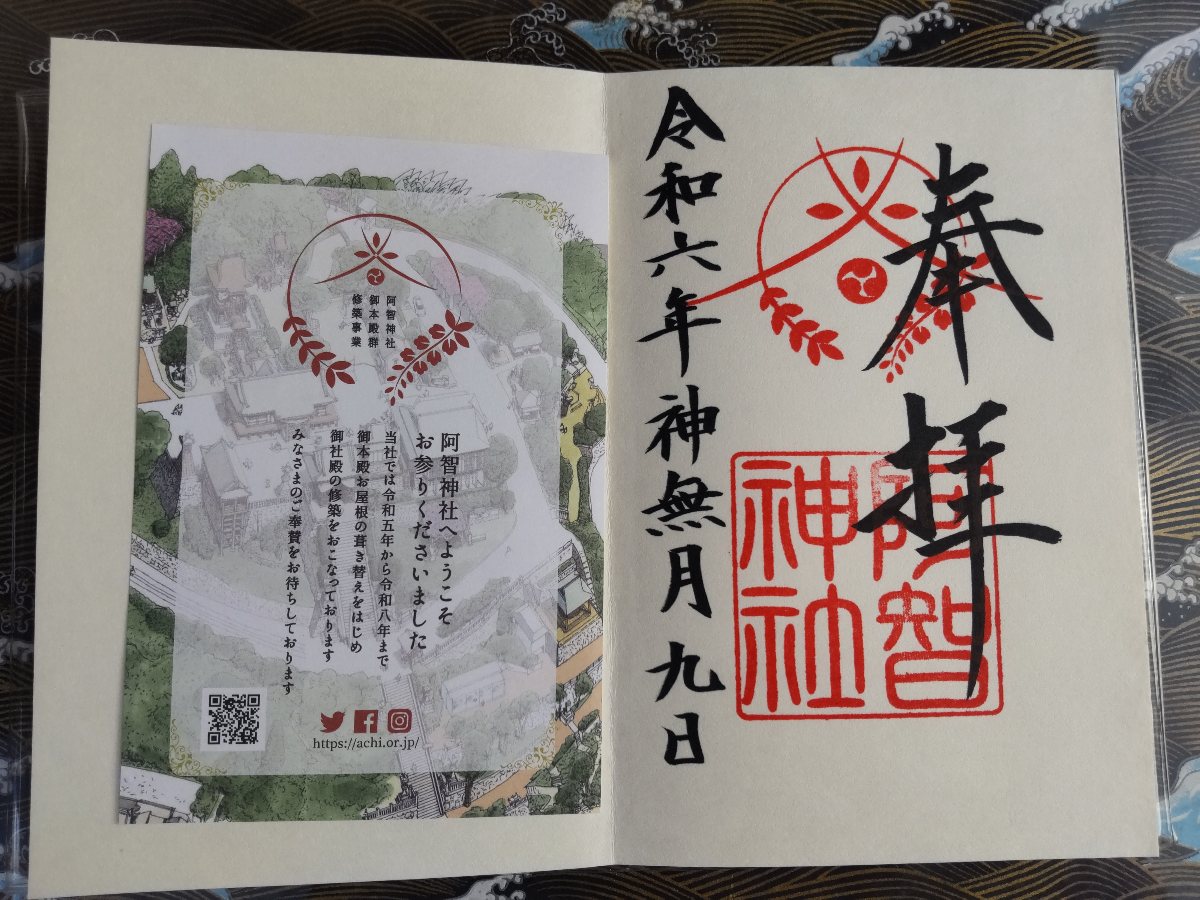 奉拝
阿智
神社
令和六年神無月九日
阿智神社
御本殿群
修築事業
阿智神社へようこそ
お参りくださいました
当社では令和五年から令和八年まで
御本殿お屋根の葺き替えをはじめ
御社殿の修築をおこなっております
みなさまのご奉賛をお待ちしております
https://achi.or.jp/